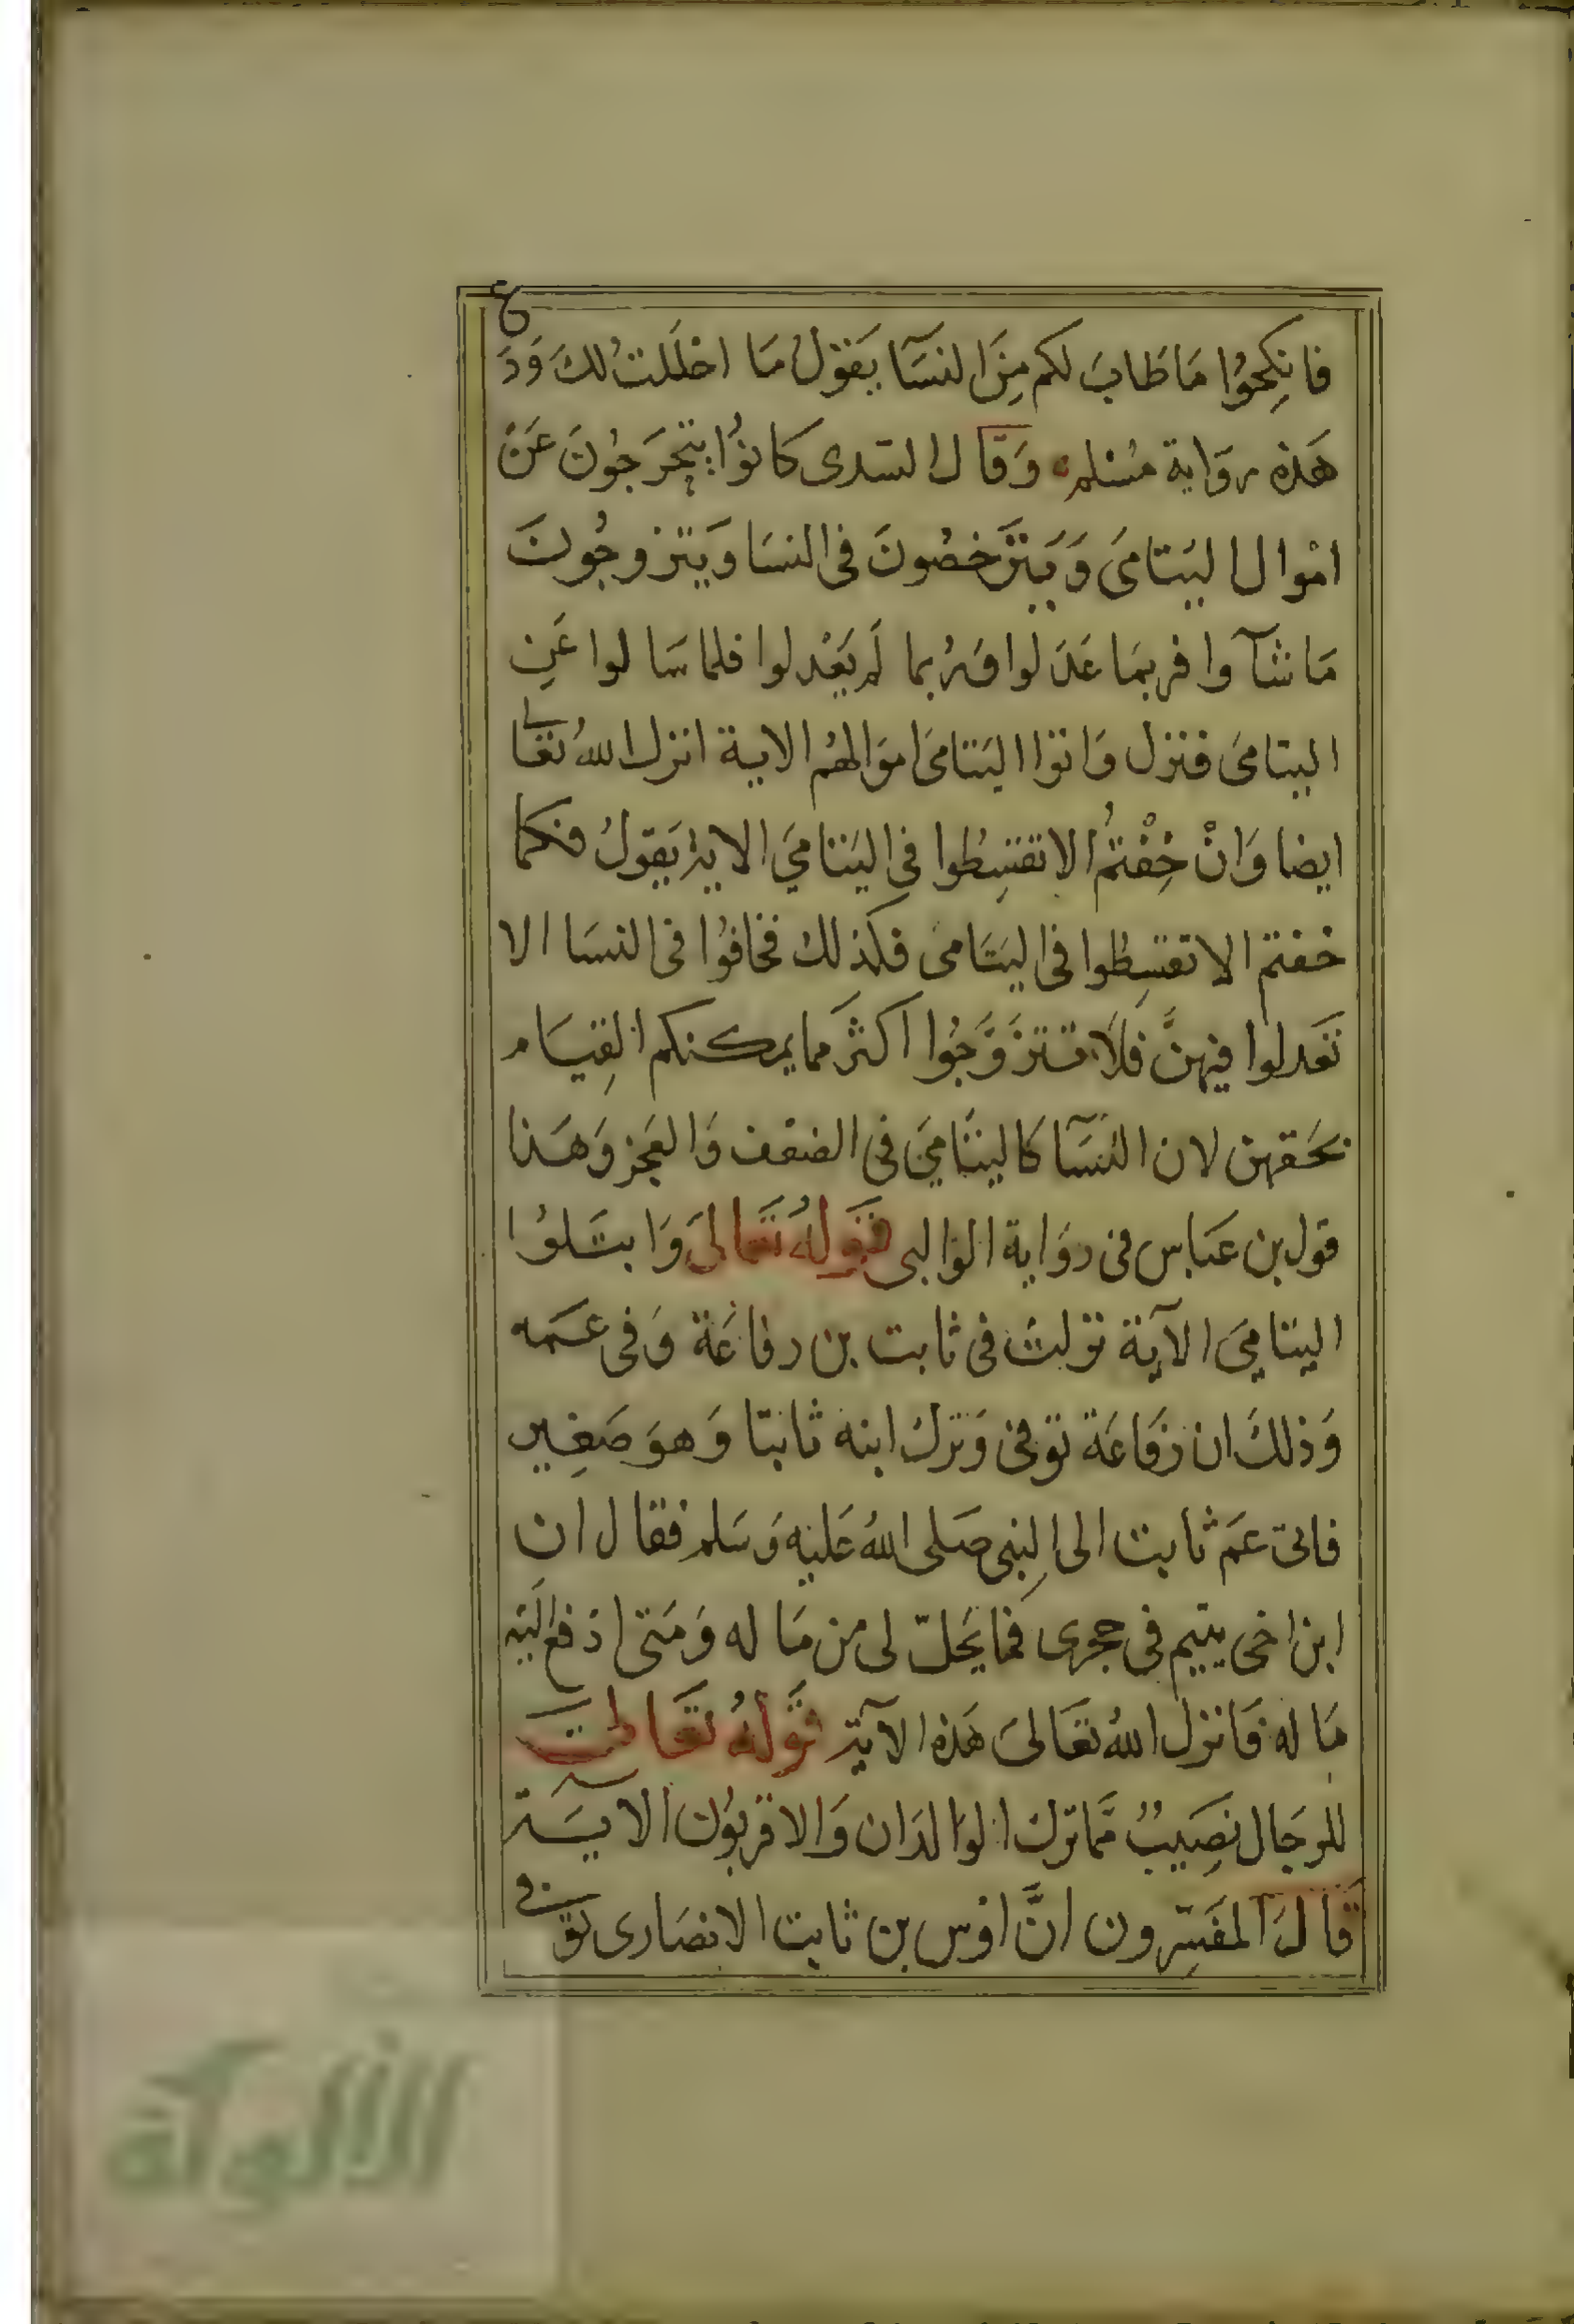 فانكِحُوُا مَا طَابَ لكم مِنَ النسَآ يَقوْلُ مَا احْلَلتُ لكَ وَدَع
هَذِه روَاية مسْلم وَقَال السّدى كانوُا يتحَرجُونَ عَنْ
امْوال اليَتامىَ وَيَترَخصُونَ فى النسَا وَيَتزوجُونَ
مَا شآوا فربمَا عَدَلوا وَرُبما لَم يَعْدلوا فلما سَالوا عَنِ
اليتامىَ فنزل وَاتوا اليَتامىَ اموَالهُم الاية انزل اللهُ تعَالى
ايضا وَانْ خِفْتُمُ الا تقسِطُوا فى اليَتامىَ الاية يَقولُ فكما
خفتم الا تقسِطوا فى اليَتَامى فكذلكَ فخافوُا فى النسَا الا
تَعدلوا فيهنَّ فلاَ تتزَوَّجُوا اكثرَ مما يمكنكم القِيَام
بحَقهن لان النسَآ كاليتَامىَ فى الضعف وَالعَجز وَهَذا
قول بن عَباس فى روَاية الوَالبى قَوْلهُ تَعَالىَ وَابتَلوُا
اليتامىَ الآية نزلتْ فى ثابت بن رفاعَة وَفى عَمه
وَذلكَ ان رفَاعَة توفى وَترك ابنه ثابتا وَهوَ صَغِير
فاتى عَم ثابت الى النبى صَلى اللهُ عَليه وَسَلم فقال ان
ابن اخى يتيم فى حجرى فما يَحلّ لى من مَاله وَمَتى ادفع اليَه
مَاله فَانزل اللهُ تعَالىَ هَذه الآية قَوْلهُ تعَالىَ
للرجَال نصَيبٌ مّما تركَ الوَالدَان وَالاقربوُن الآيَــة
قَالَ المفَسّرون انَّ اوْس بن ثابت الانصَارى توفى
الألوكة